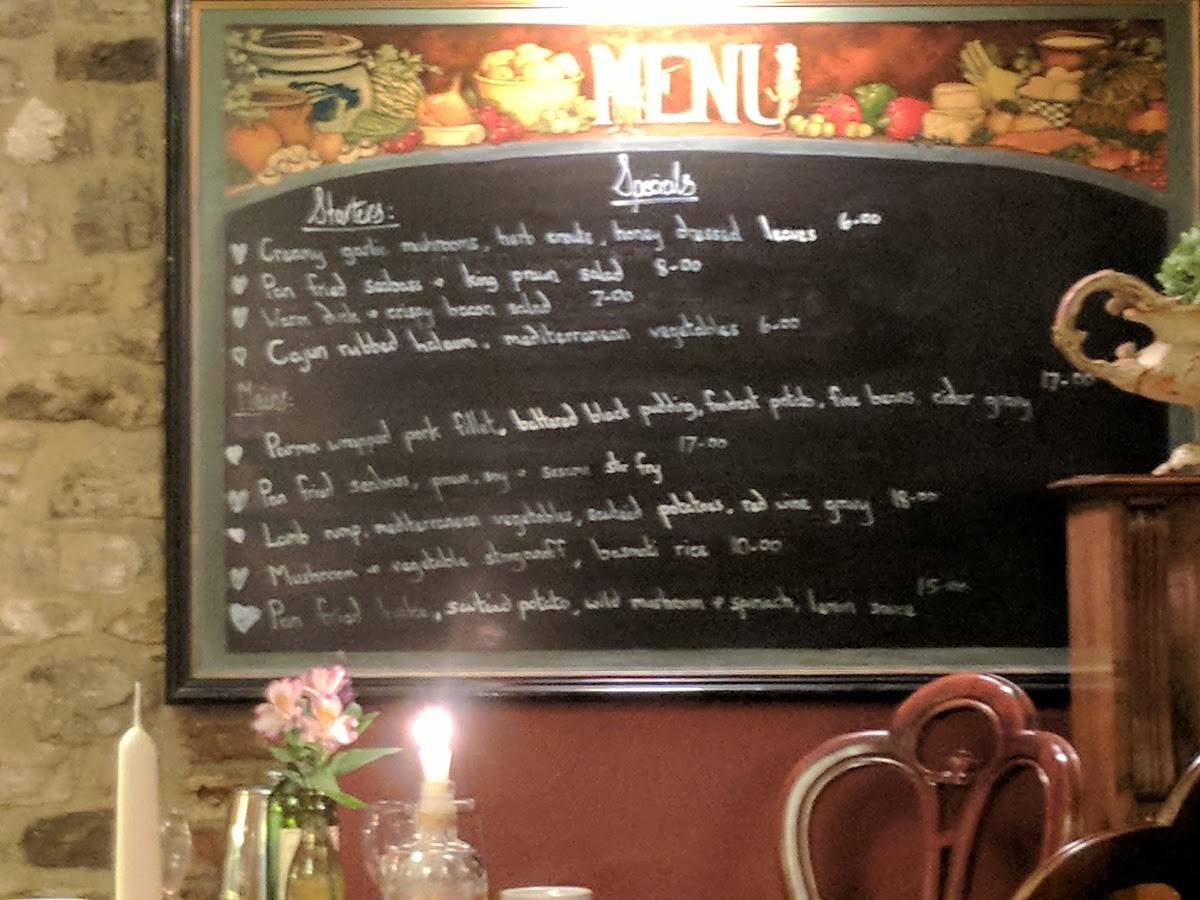 MENU
Specials
Starters:
Creamy garlic mushrooms, herb croute, honey dressed leaves 6-00
Pan fried seabass + king prawn salad 8-00
Warm duck + crispy bacon salad 7-00
Cajun rubbed haloumi, mediterranean vegetables 6-00
Mains:
Parma wrapped pork fillet, battered black pudding, fondant potato, fine beans, cider gravy 17-00
Pan fried seabass, prawn, soy + sesame stir fry 17-00
Lamb rump, mediterranean vegetables, sauteed potatoes, red wine gravy 18-00
Mushroom + vegetable stroganoff, basmati rice 10-00
Pan fried hake, sauteed potato, wild mushroom + spinach, lemon sauce 15-00